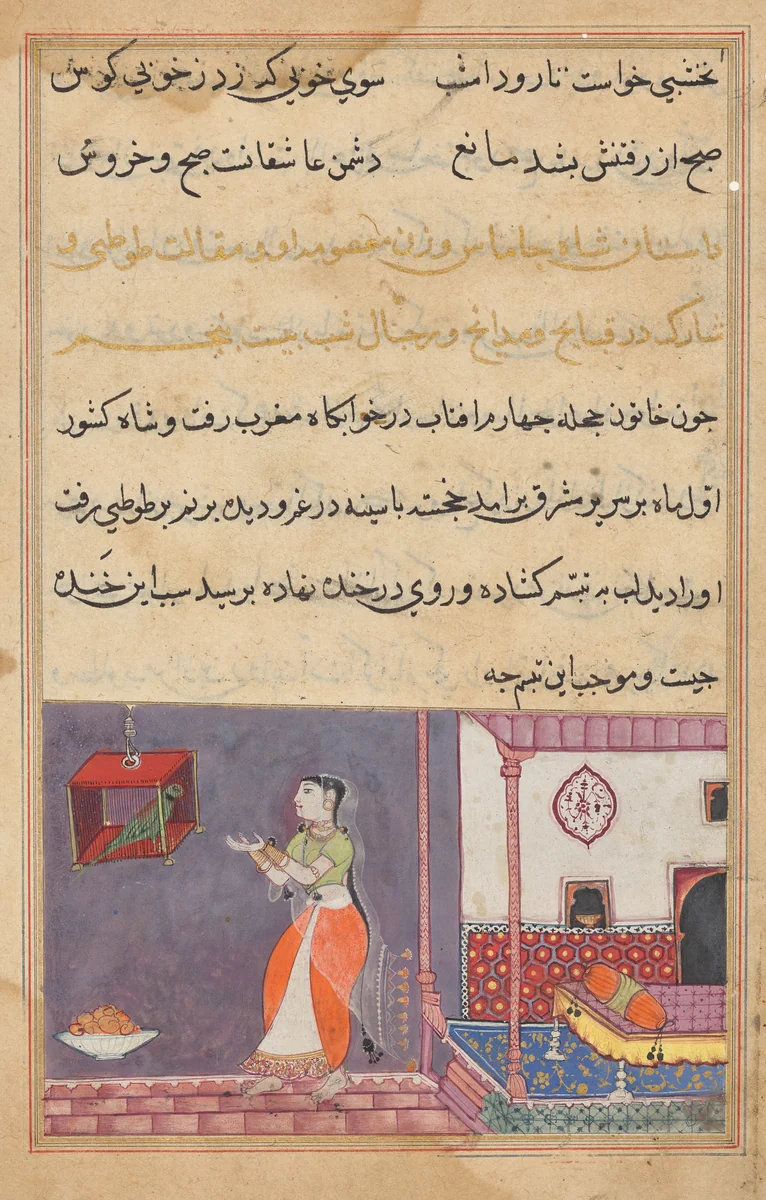 نخشبي خواست تا رود امشب سوي خوبي كه زد ز خوبي كوس
صبح از رفتنش بشد مانع دشمن عاشقانت صبح و خروس
داستان شاه جاماس و زن معصوم او و مقالت طوطي و
شارك در قبايح و مدايح و رجال شب بيست پنجم
جون خاتون حجله جهارم افتاب در خوابكاه مغرب رفت و شاه كشور
اوّل ماه بر سرير مشرق برامد خجسته با سينه در غم و ديده بر نم بر طوطي رفت
او را ديد لب به تبسّم كشاده و روي در خنده نهاده برسيد سبب اين خَنده
جيست و موجب اين تبسم جه